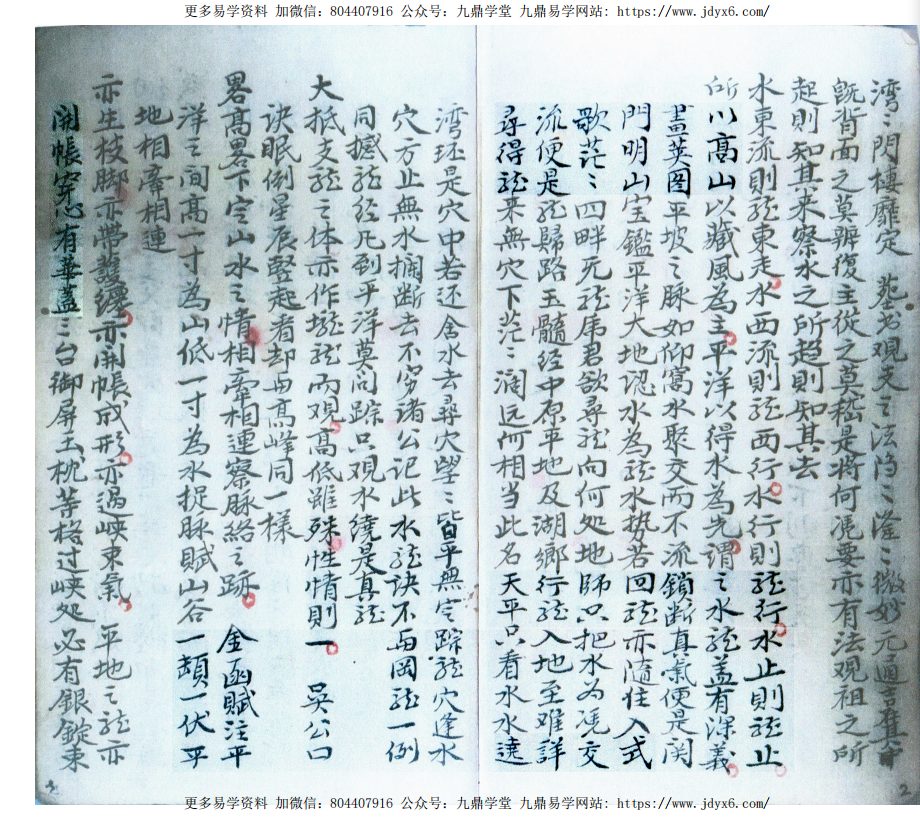 更多易学资料 加微信：804407916 公众号：九鼎学堂 九鼎易学网站：https://www.jdyx6.com/
湾〻門楼靡定 观天之法隐〻隆〻微妙元通吉
既背面之莫辨復主從之莫嵇是将何凭要亦有法观祖之所
起則知其来察水之所趋則知其去
水東流則龙東走水西流則龙西行水行則龙行水止則龙止
所以高山以藏風為主平洋以得水為先谓之水龙盖有深義
畫英图平坡之脉如仰窩水聚交而不流鎖断真氣便是関
門明山宝鑑平洋大地認水為龙水势若回龙亦隨住入式
歌茫〻四畔无龙虎君欲尋龙向何处地師只把水为凭交
流便是龙歸路玉髓经中原平地及湖鄉行龙入地至难詳
尋得龙来無穴下茫〻阔远何相当此名天平只看水水遶
2
湾环是穴中若还舍水去尋穴望〻皆平無定踪龙穴逢水
穴方止無水攔断去不穷诸公记此水龙诀不与岡龙一例
同撼龙经凡到平洋莫问踪只观水繞是真龙
大抵支龙之体亦作壠龙内观高低雖殊性情則一 吴公口
诀眠倒星辰竪起看却与高峰同一樣
畧高畧下定山水之情相牽相連察脉絡之跡 金函賦注平
洋之间高一寸為山低一寸為水捉脉賦山谷一顛一伏平
地相牽相連
亦生枝脚亦带纏亦開帳成形亦過峡束氣 平地之龙亦
開帳穿心有華蓋三台御屏玉枕等格过峡处必有銀錠束
3
更多易学资料 加微信：804407916 公众号：九鼎学堂 九鼎易学网站：https://www.jdyx6.com/